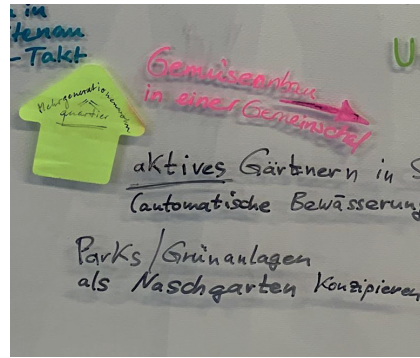 in
tenau
- Takt
Mehrgenerationenwohn
quartier
Gemüseanbau
in einer Gemeinschaf
U
aktives Gärtnern in S
(automatische Bewässerung
Parks/Grünanlagen
als Naschgarten Konzipieren